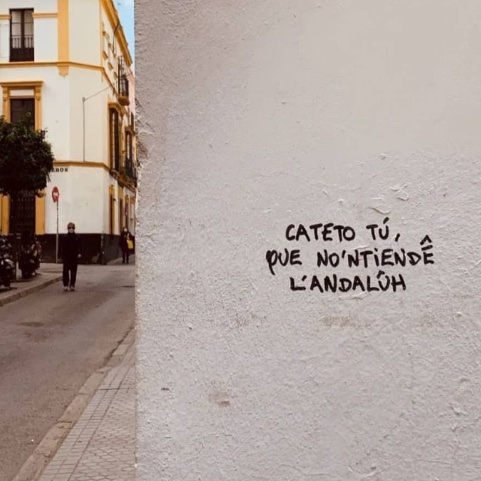 CATETO TÚ,
QUE NO'NTIENDÊ
L'ANDALÛH